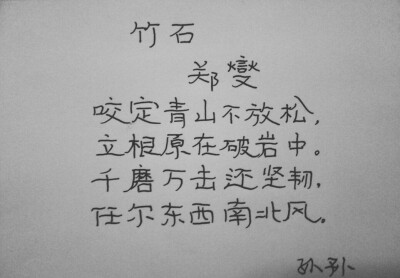 竹石
郑燮
咬定青山不放松，
立根原在破岩中。
千磨万击还坚韧，
任尔东西南北风。